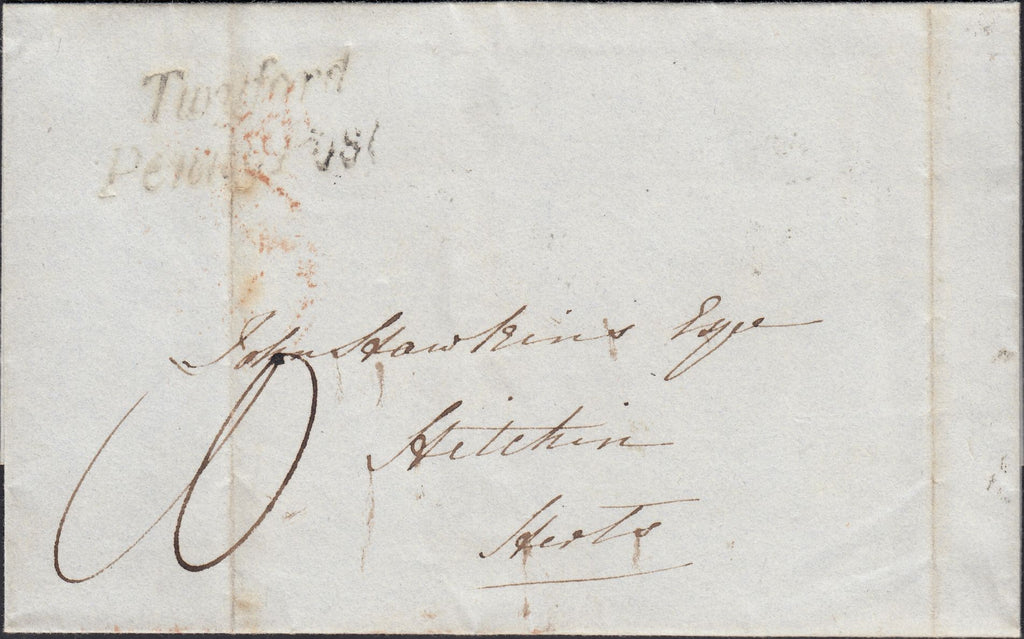 Twyford
Penny Post
John Hawkins Esqe
Hitchin
Herts